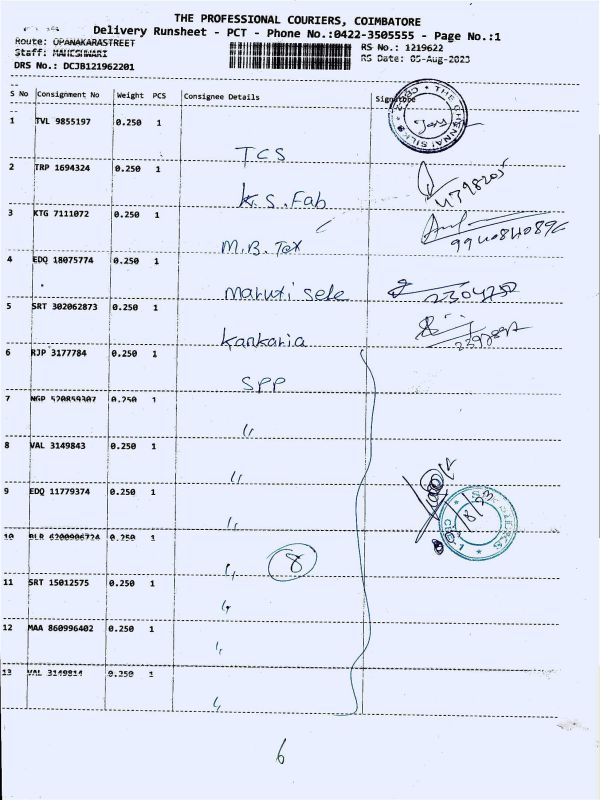 THE PROFESSIONAL COURIERS, COIMBATORE
Delivery Runsheet - PCT - Phone No.:0422-3505555 - Page No.:1
Route: OPANAKARASTREET
RS No.: 1219622
Staff: MAHESHWARI
RS Date: 05-Aug-2023
DRS No.: DCJB121962201
S No Consignment No Weight PCS Consignee Details Signature
1 TVL 9855197 0.250 1 TCS
THE CHENNAI SILKS
2 TRP 1694324 0.250 1 K.S. Fab
3 KTG 7111072 0.250 1 M.B. Tex
4 EDQ 18075774 0.250 1 maruti sele
5 SRT 302062873 0.250 1 kankaria
6 RJP 3177784 0.250 1 SPP
7 NGP 520859307 0.250 1 "
8 VAL 3149843 0.250 1 "
9 EDQ 11779374 0.250 1 "
10 BLR 6200906724 0.250 1 "
8
11 SRT 15012575 0.250 1 "
12 MAA 860996402 0.250 1 "
13 VAL 3149814 0.250 1 "
6